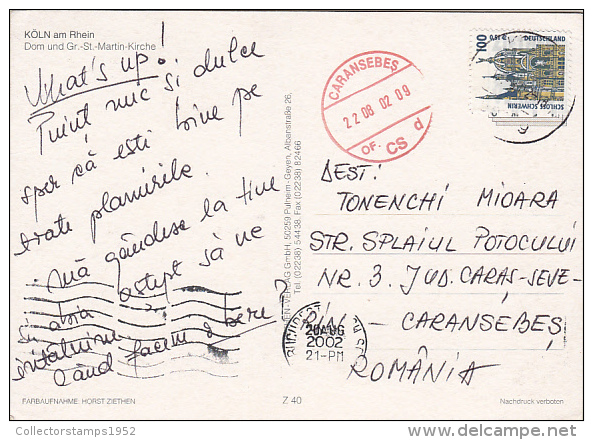 KÖLN am Rhein
Dom und Gr.-St.-Martin-Kirche
What's up!
Puiuț mic și dulce
sper că esti bine pe
toate planurile.
Mă gândesc la tine
și abia aștept să ne
întâlnim
când facem o bere?
FARBAUFNAHME: HORST ZIETHEN
GmbH, 50259 Pulheim-Geyen, Albanstraße 26,
Tel. (02238) 54438, Fax (02238) 82466
Z 40
CARANSEBEȘ
22 08 02 09
OF. CS d
100
0,51 €
DEUTSCHLAND
SCHLOSS SCHWERIN
DEST:
TONENCHI MIOARA
STR. SPLAIUL POTOCULUI
NR. 3 JUD. CARAȘ-SEVE-
RIN - CARANSEBEȘ
ROMÂNIA
20 AUG
2002
21-PM
Nachdruck verboten
Collectorstamps1952
delcampe.net